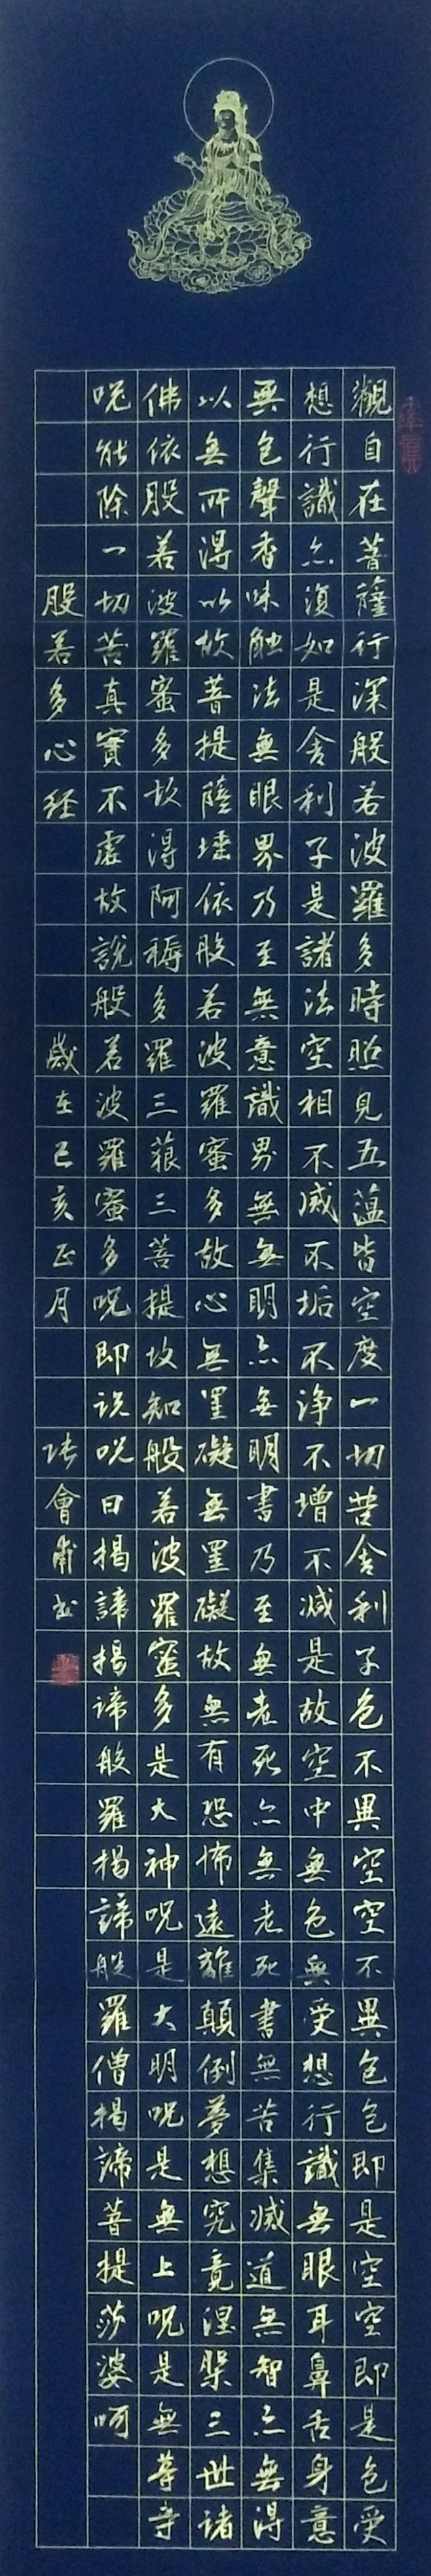 觀自在菩薩行深般若波羅多時照見五蘊皆空度一切苦舍利子色不異空空不異色色即是空空即是色受
想行識亦須如是舍利子是諸法空相不滅不垢不淨不增不減是故空中無色無受想行識無眼耳鼻舌身意
無色聲香味触法無眼界乃至無意識界無無明亦無明書乃至無老死亦無老死書無苦集滅道無智亦無得
以無所得以故菩提薩埵依般若波羅蜜多故心無罣礙無罣礙故無有恐怖遠離顛倒夢想究竟涅槃三世诸
佛依般若波羅蜜多故得阿耨多羅三藐三菩提故知般若波羅蜜多是大神呪是大明呪是無上呪是無等
呪能除一切苦真實不虛故說般若波羅蜜多呪即说呪曰揭諦揭諦般羅揭諦般羅僧揭諦菩提莎婆呵
般若多心经
歲在己亥正月
張會甫书